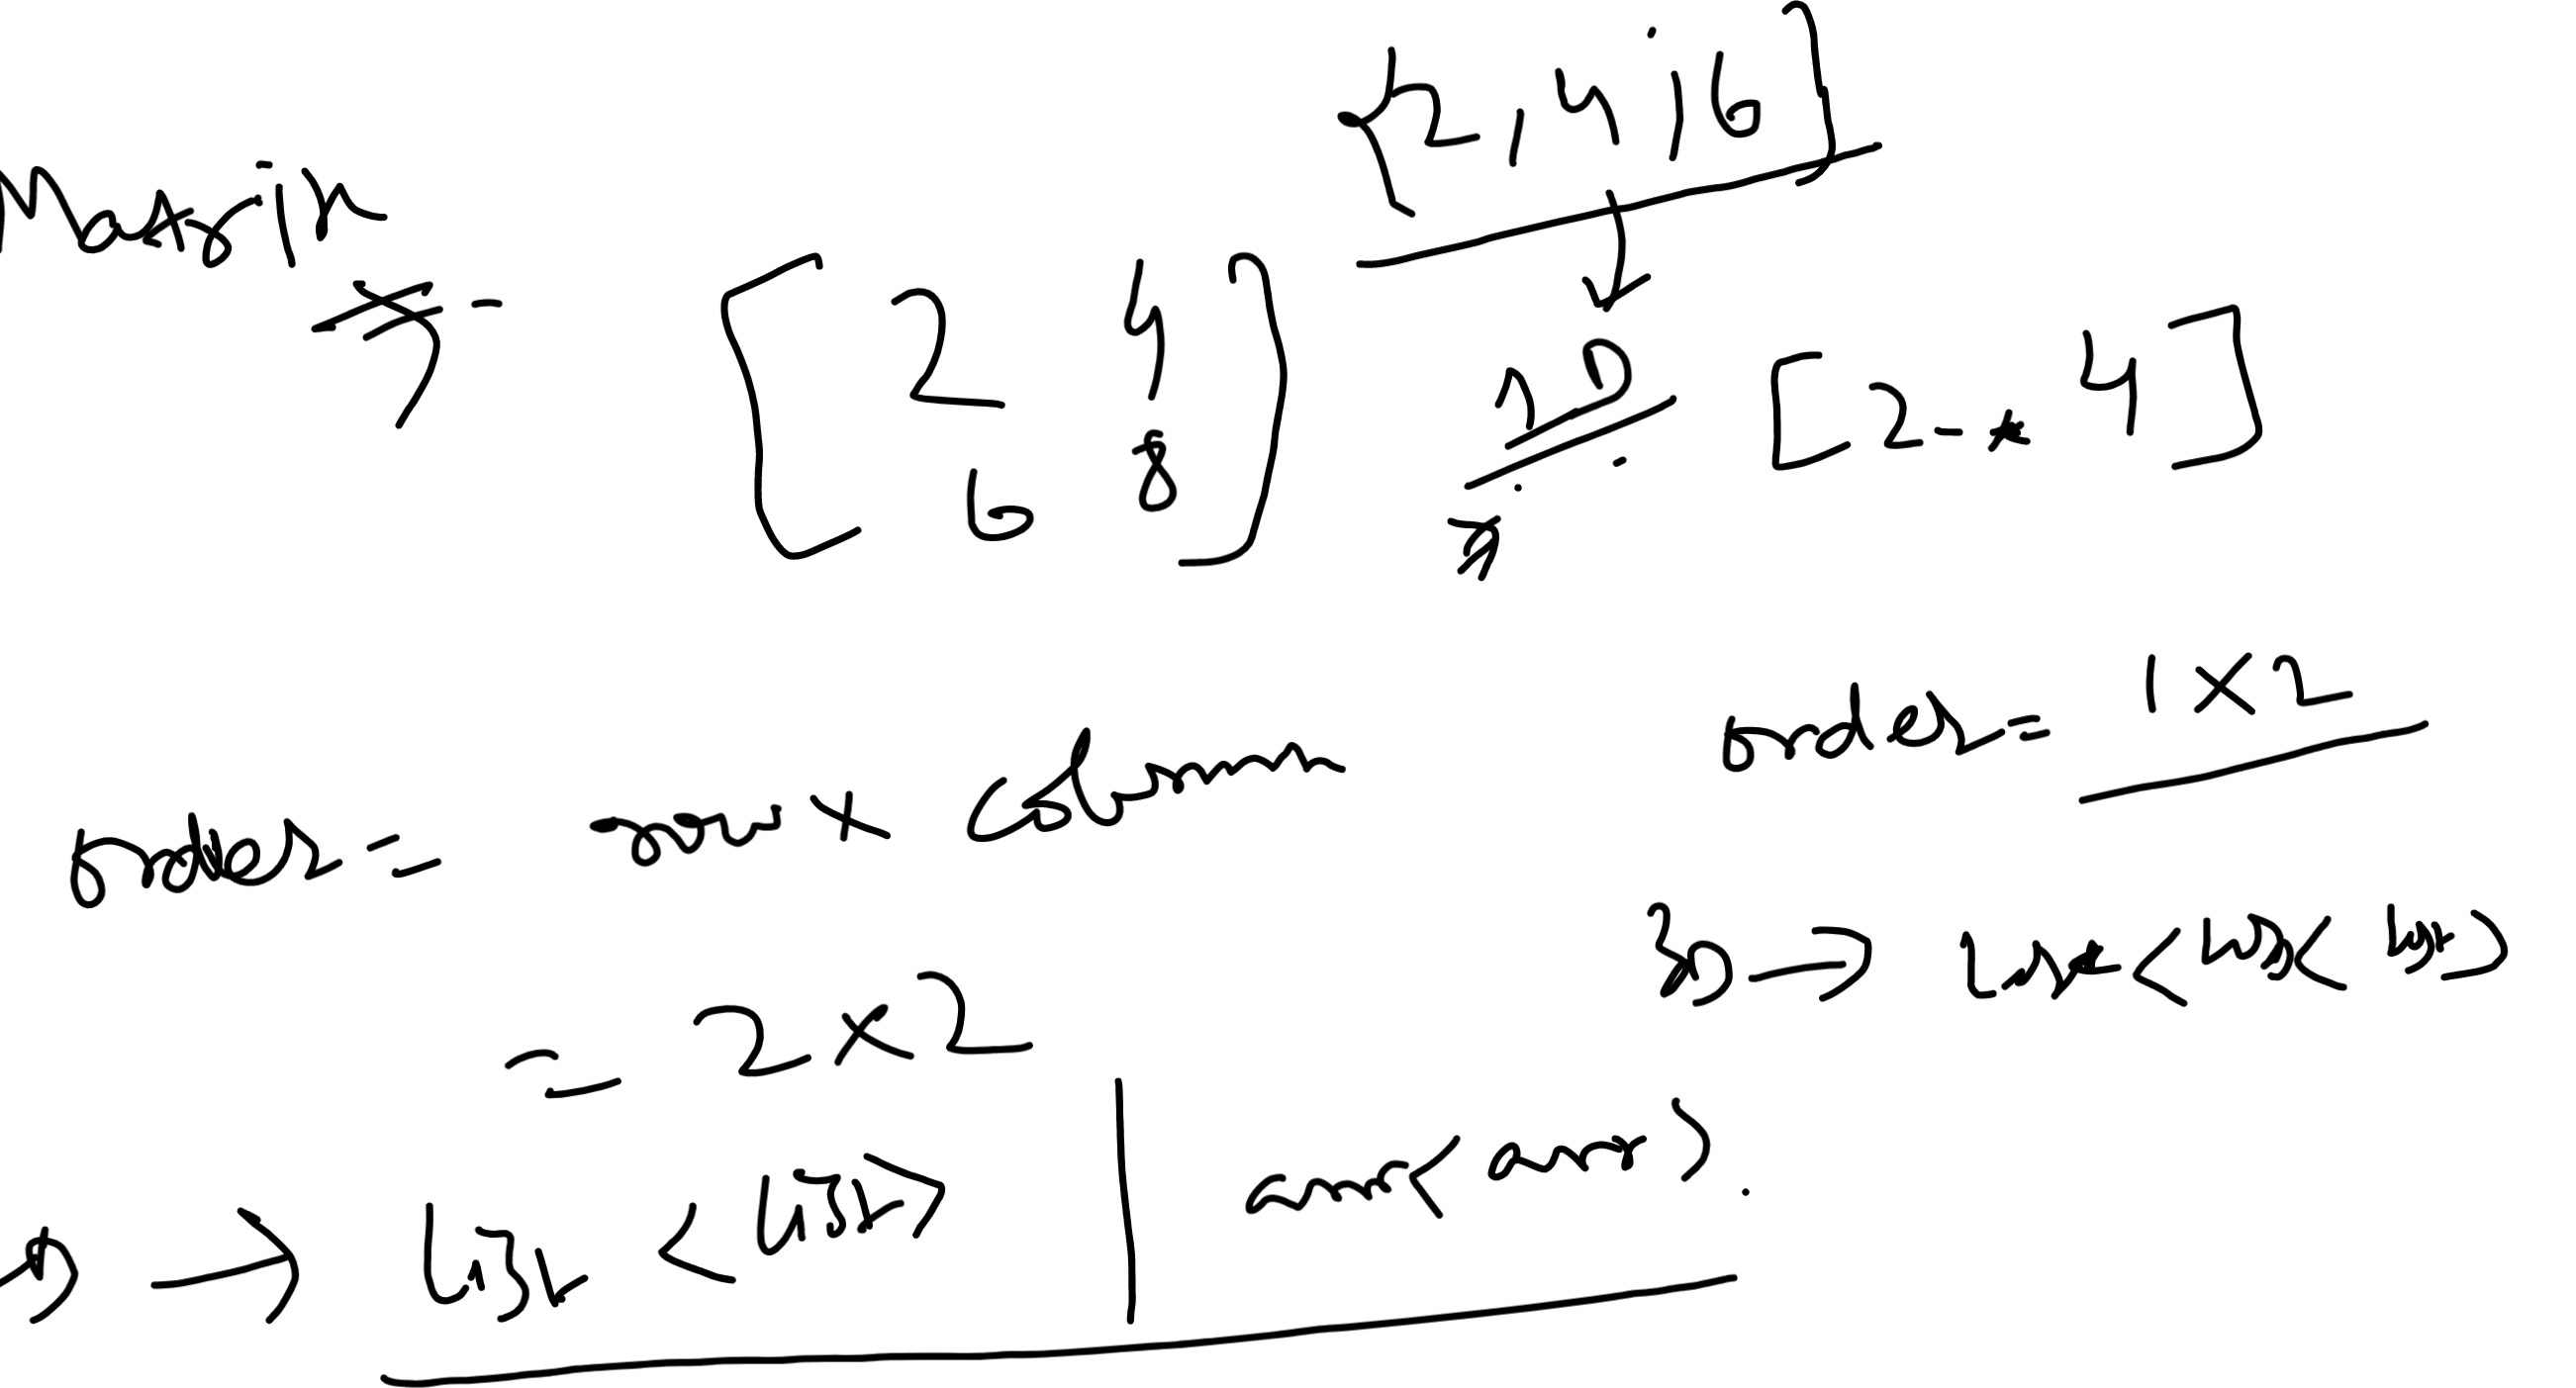 {2, 4, 6}
Matrix
[ 2 4
6 8 ]
1D [2 - 4]
order = 1 x 2
order = row x column
= 2 x 2
3D → List < List < List >
D → List < List > | arr < arr > .